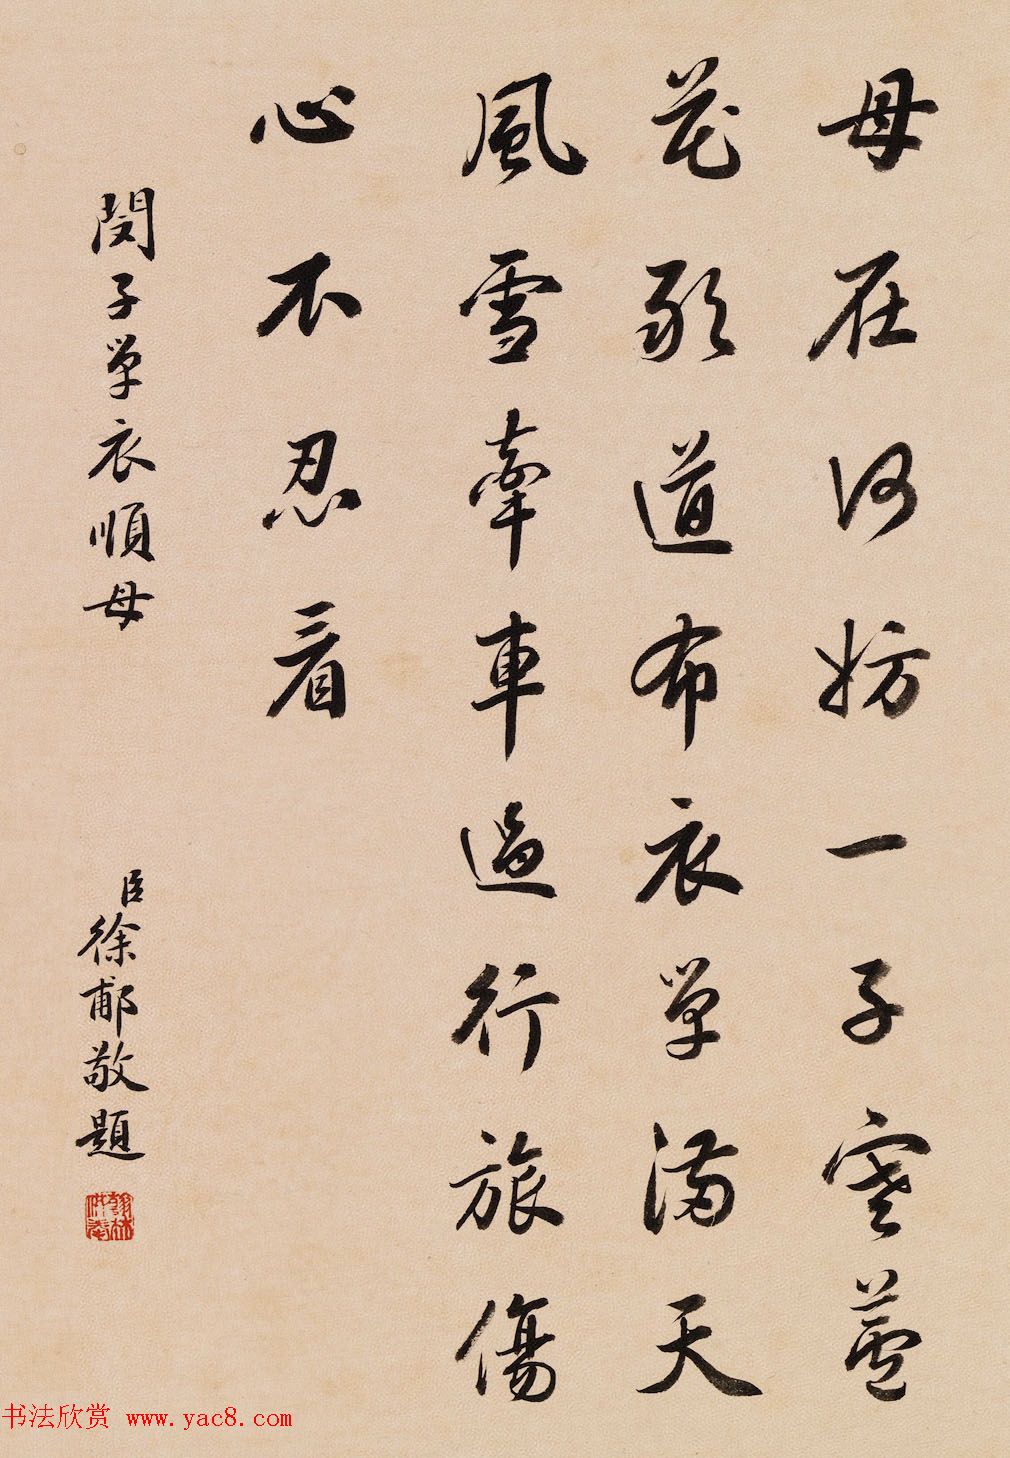 母在何妨一子寒蘆
花敢道布衣單滿天
風雪牽車過行旅傷
心不忍看
閔子單衣順母
臣徐郙敬題
翰林供奉
书法欣赏 www.yac8.com